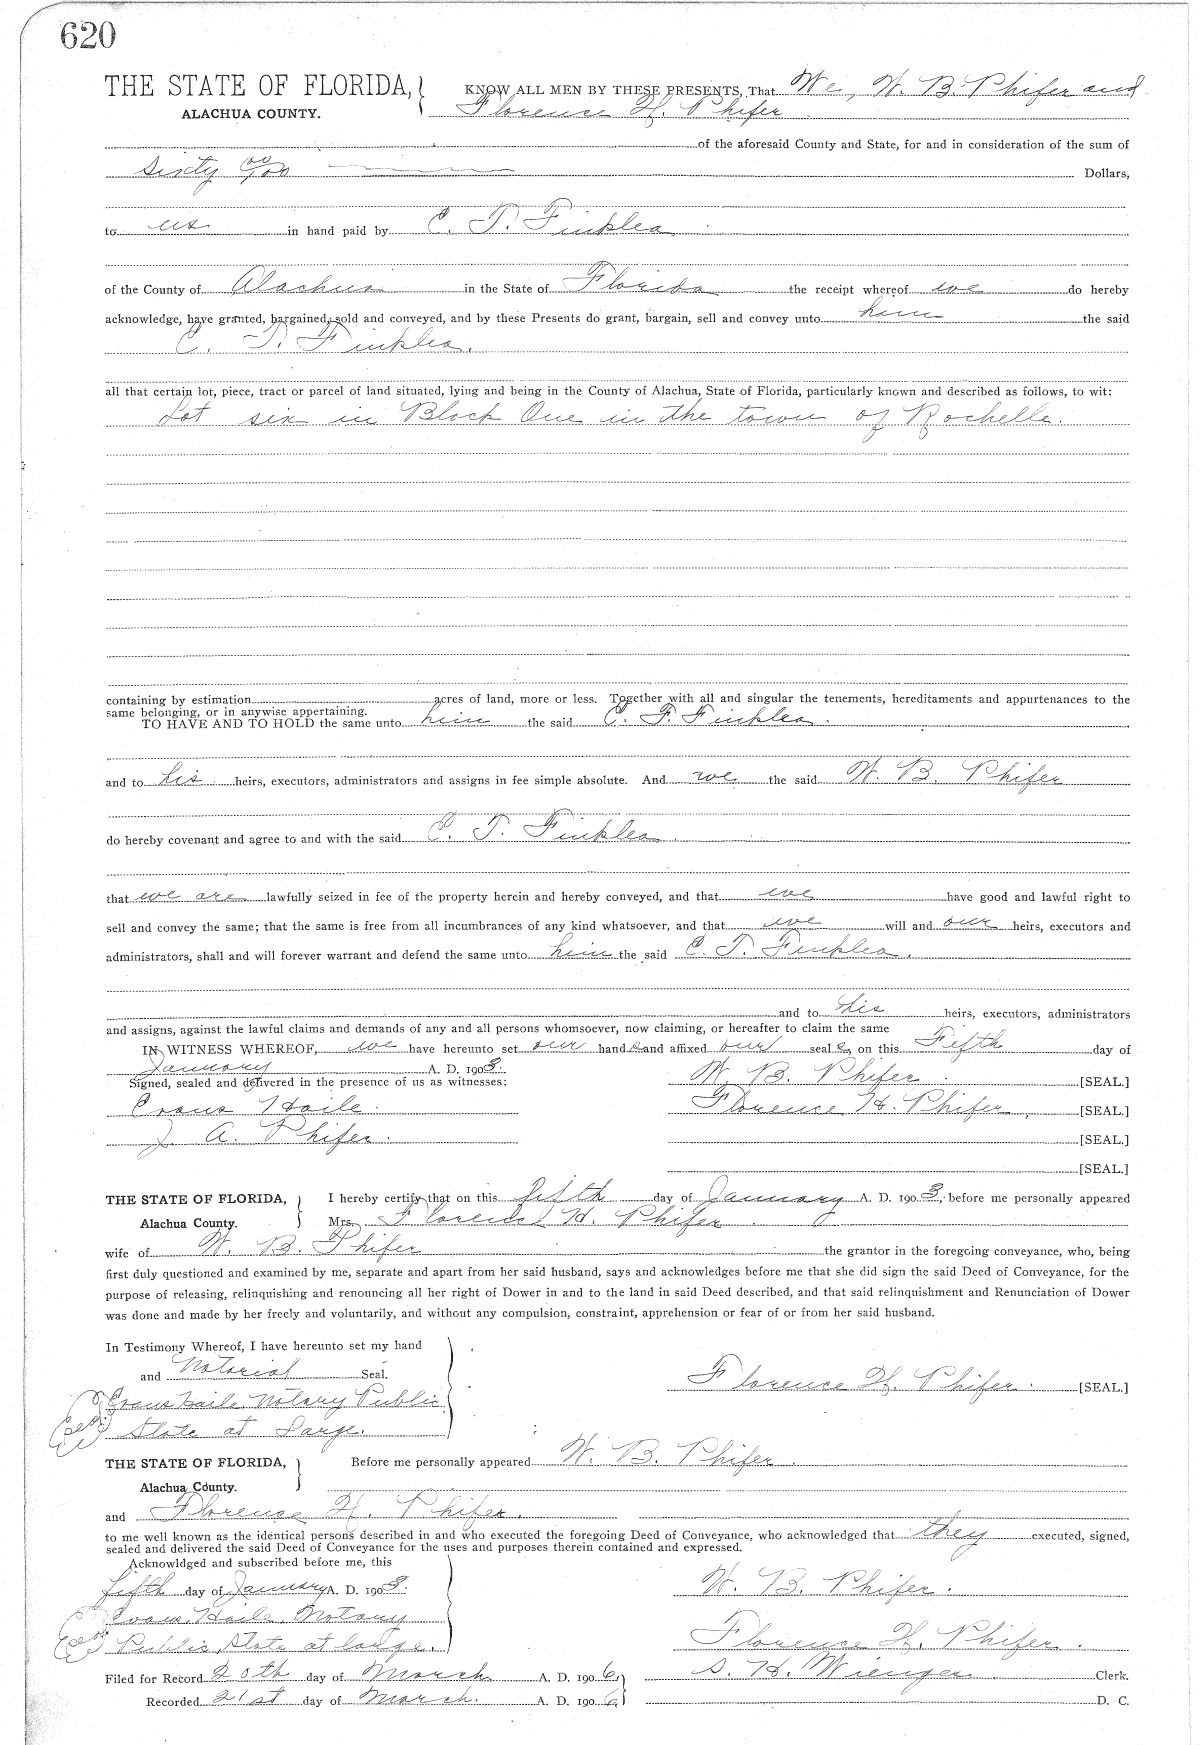 620
THE STATE OF FLORIDA, KNOW ALL MEN BY THESE PRESENTS, That We, W. B. Phifer and
ALACHUA COUNTY. Florence H. Phifer
of the aforesaid County and State, for and in consideration of the sum of
Sixty 00/100 Dollars,
to us in hand paid by C. T. Finklea
of the County of Alachua in the State of Florida the receipt whereof we do hereby
acknowledge, have granted, bargained, sold and conveyed, and by these Presents do grant, bargain, sell and convey unto him the said
C. T. Finklea.
all that certain lot, piece, tract or parcel of land situated, lying and being in the County of Alachua, State of Florida, particularly known and described as follows, to wit:
Lot six in Block One in the town of Rochelle.
containing by estimation acres of land, more or less. Together with all and singular the tenements, hereditaments and appurtenances to the
same belonging, or in anywise appertaining.
TO HAVE AND TO HOLD the same unto him the said C. T. Finklea.
and to his heirs, executors, administrators and assigns in fee simple absolute. And we the said W. B. Phifer
do hereby covenant and agree to and with the said C. T. Finklea.
that we are lawfully seized in fee of the property herein and hereby conveyed, and that we have good and lawful right to
sell and convey the same; that the same is free from all incumbrances of any kind whatsoever, and that we will and our heirs, executors and
administrators, shall and will forever warrant and defend the same unto him the said C. T. Finklea.
and to his heirs, executors, administrators
and assigns, against the lawful claims and demands of any and all persons whomsoever, now claiming, or hereafter to claim the same
IN WITNESS WHEREOF, we have hereunto set our hand s and affixed our seal s, on this Fifth day of
January A. D. 1903.
Signed, sealed and delivered in the presence of us as witnesses: W. B. Phifer [SEAL.]
Evans Haile. Florence H. Phifer, [SEAL.]
J. A. Phifer. [SEAL.]
[SEAL.]
THE STATE OF FLORIDA, I hereby certify that on this fifth day of January A. D. 1903, before me personally appeared
Alachua County. Mrs. Florence H. Phifer.
wife of W. B. Phifer the grantor in the foregoing conveyance, who, being
first duly questioned and examined by me, separate and apart from her said husband, says and acknowledges before me that she did sign the said Deed of Conveyance, for the
purpose of releasing, relinquishing and renouncing all her right of Dower in and to the land in said Deed described, and that said relinquishment and Renunciation of Dower
was done and made by her freely and voluntarily, and without any compulsion, constraint, apprehension or fear of or from her said husband.
In Testimony Whereof, I have hereunto set my hand
and Notarial Seal. Florence H. Phifer. [SEAL.]
Evans Haile, Notary Public
Seal State at Large.
THE STATE OF FLORIDA, Before me personally appeared W. B. Phifer.
Alachua County.
and Florence H. Phifer.
to me well known as the identical persons described in and who executed the foregoing Deed of Conveyance, who acknowledged that they executed, signed,
sealed and delivered the said Deed of Conveyance for the uses and purposes therein contained and expressed.
Acknowldged and subscribed before me, this
fifth day of January A. D. 1903. W. B. Phifer.
Evans Haile, Notary
Seal Public, State at large. Florence H. Phifer.
Filed for Record 20th day of March A. D. 1906, S. H. Wienges Clerk.
Recorded 21st day of March. A. D. 1906 D. C.